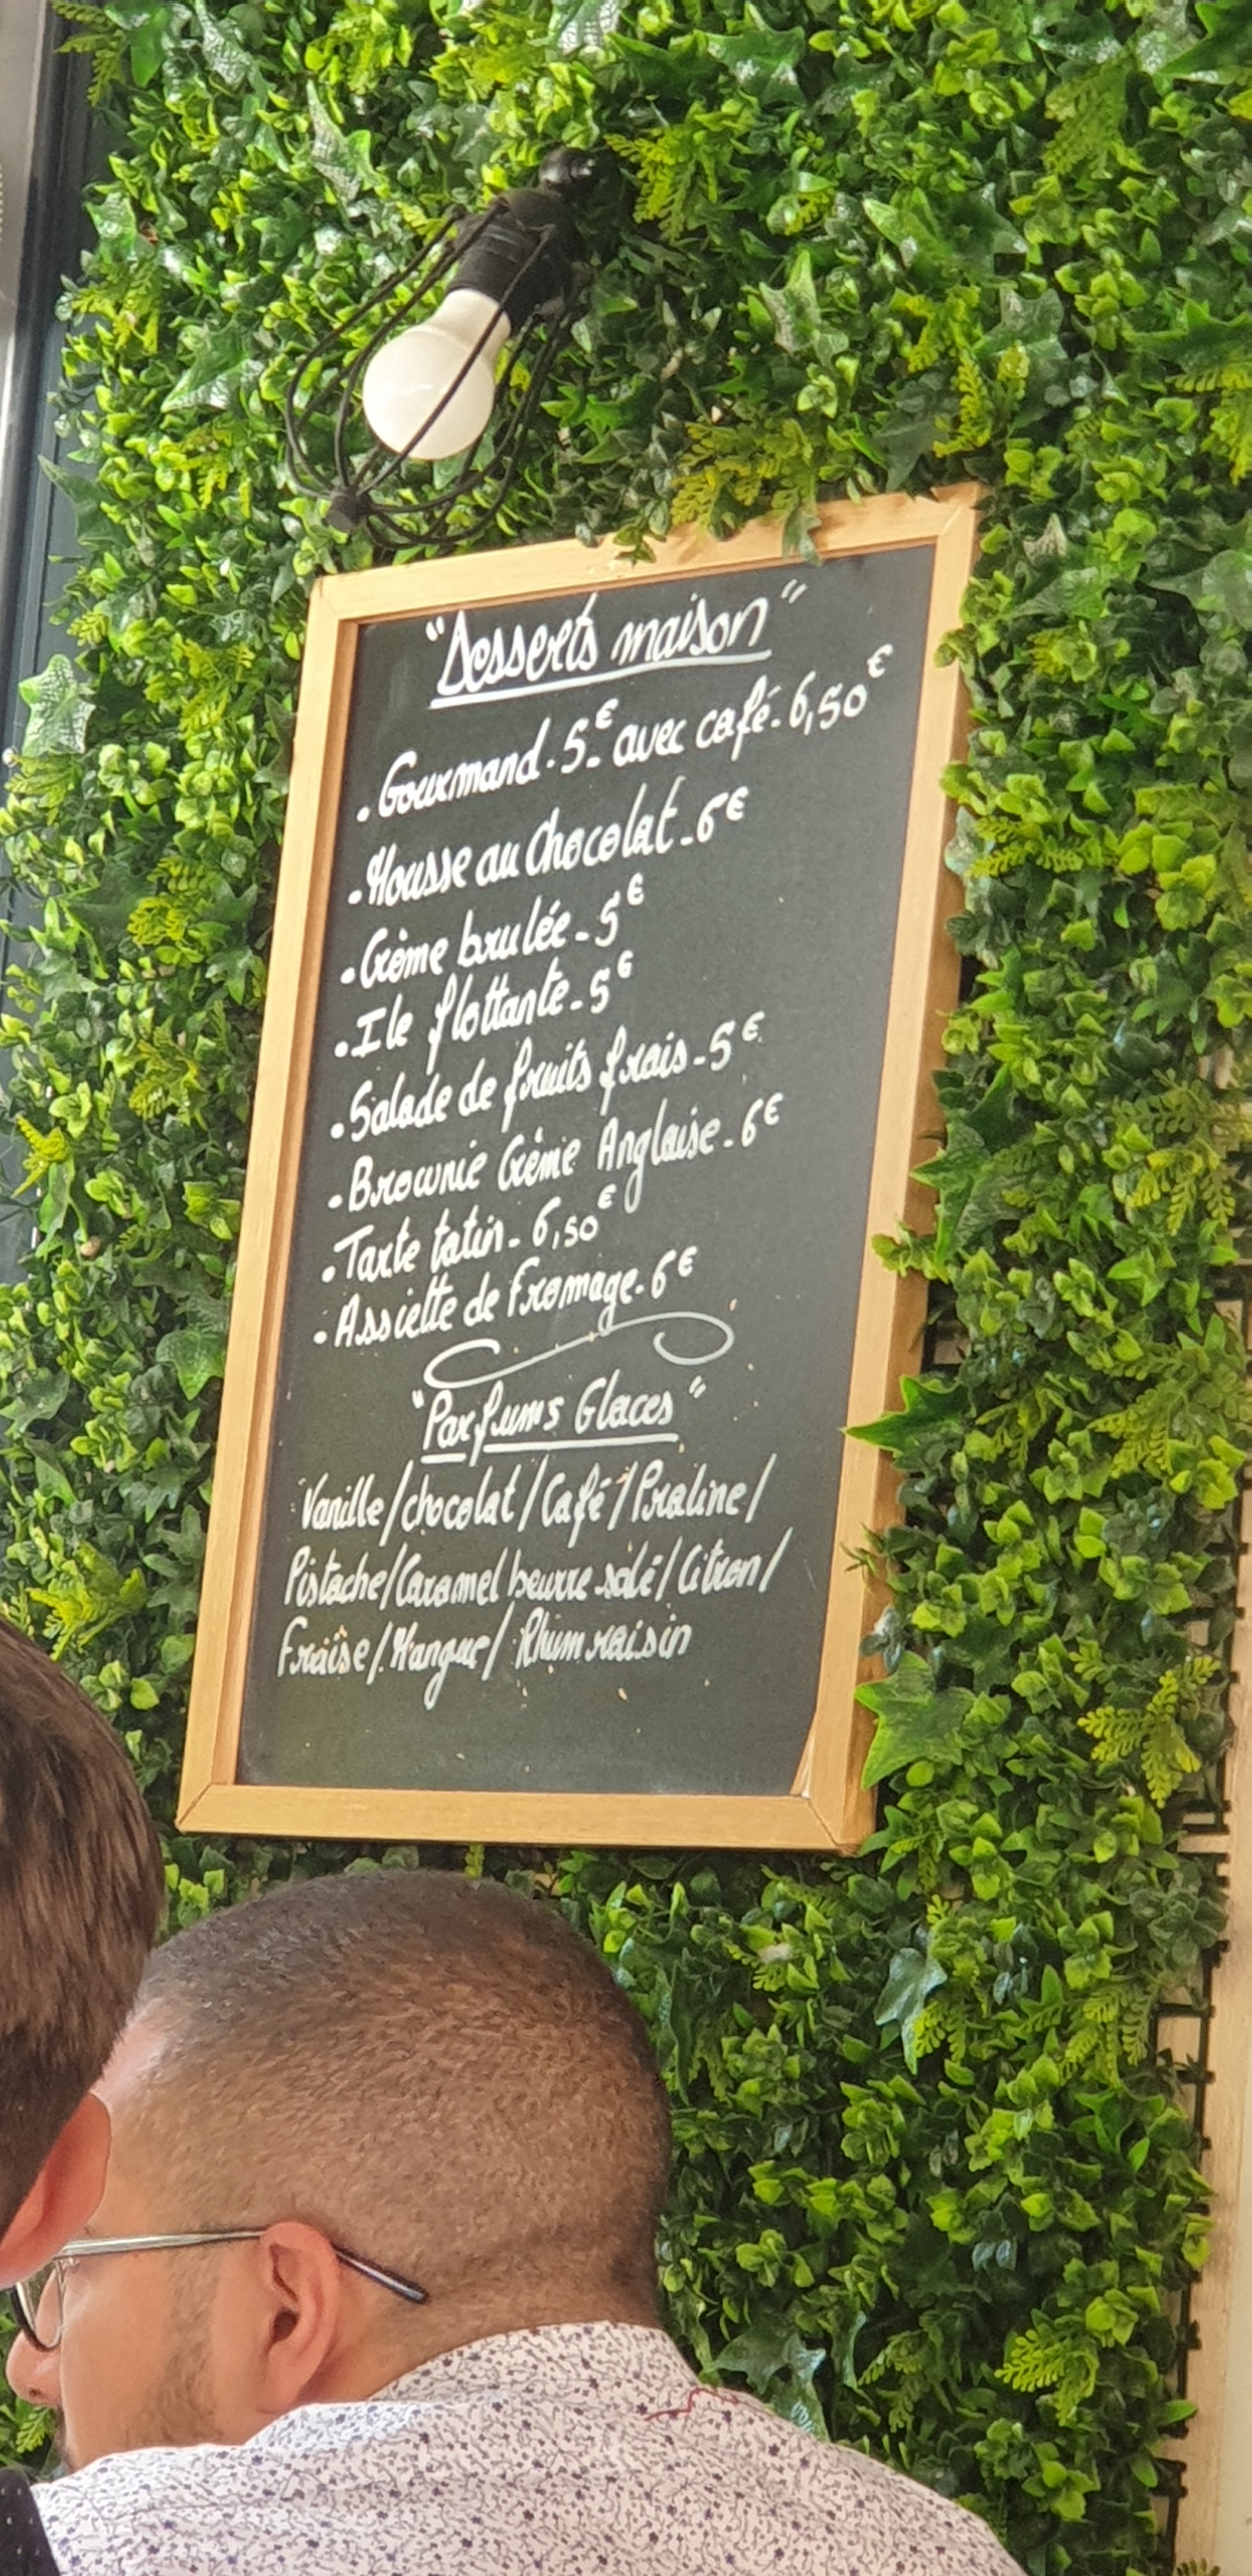 "Desserts maison"
. Gourmand. 5.€ avec café. 6,50€
. Mousse au Chocolat. 6€
. Crème brulée. 5€
. Ile flottante. 5€
. Salade de fruits frais. 5€
. Brownie Crème Anglaise. 6€
. Tarte tatin. 6,50€
. Assiette de Fromage. 6€
"Parfums Glaces"
Vanille/chocolat/Café/Praline/
Pistache/Caramel beurre salé/Citron/
Fraise/Mangue/Rhum raisin